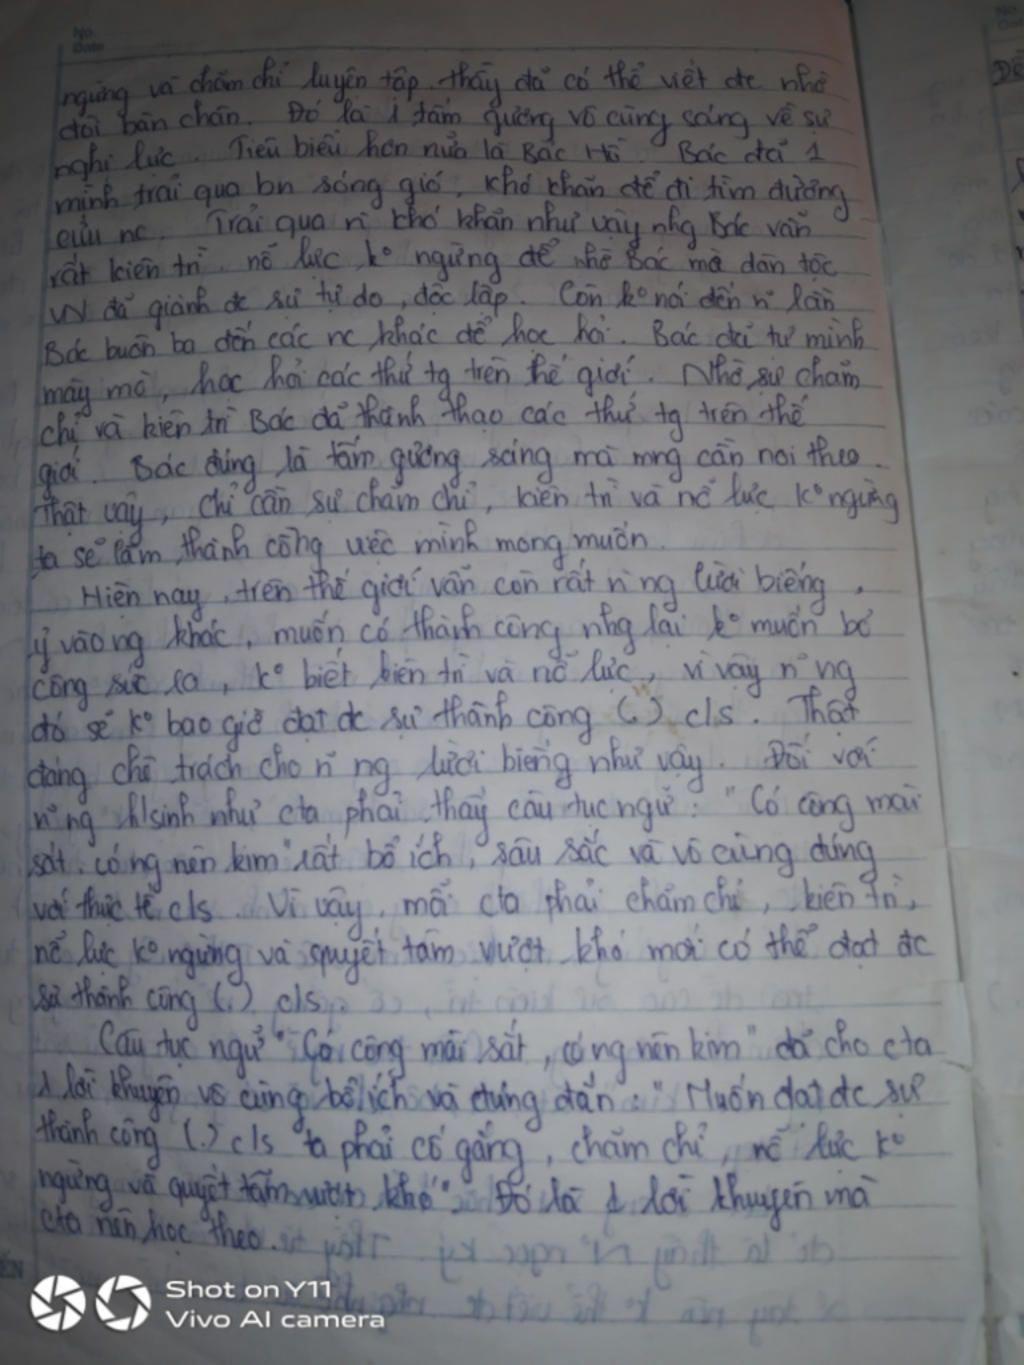 No.
Date
ngừng và chăm chỉ luyện tập thầy đã có thể viết đc nhờ
đôi bàn chân. Đó là 1 tấm gương vô cùng sáng về sự
nghị lực. Tiêu biểu hơn nữa là Bác Hồ. Bác đã 1
mình trải qua bn sóng gió, khó khăn để đi tìm đường
cứu nc. Trải qua n~ khó khăn như vậy nhg Bác vẫn
rất kiên trì nỗ lực k° ngừng để nhờ Bác mà dân tộc
VN đã giành đc sự tự do, độc lập. Còn k° nói đến n~ lần
Bác buôn ba đến các nc khác để học hỏi. Bác đã tự mình
mày mò, học hỏi các thứ tg trên thế giới. Nhờ sự chăm
chỉ và kiên trì Bác đã thành thạo các thứ tg trên thế
giới. Bác đúng là tấm gương sáng mà mng cần noi theo.
Thật vậy, chỉ cần sự chăm chỉ, kiên trì và nỗ lực k° ngừng
ta sẽ làm thành công việc mình mong muốn.
Hiện nay, trên thế giới vẫn còn rất n~ ng lười biếng,
ỷ vào ng khác, muốn có thành công nhg lại k° muốn bỏ
công sức ra, k° biết kiên trì và nỗ lực, vì vậy n~ ng
đó sẽ k° bao giờ đạt đc sự thành công (.) c/s. Thật
đáng chê trách cho n~ ng lười biếng như vậy. Đối với
n~ ng h/sinh như cta phải thấy câu tục ngữ: "Có công mài
sắt, có ng nên kim" rất bổ ích, sâu sắc và vô cùng đúng
với thực tế c/s. Vì vậy, mỗi cta phải chăm chỉ, kiên trì,
nỗ lực k° ngừng và quyết tâm vượt khó mới có thể đạt đc
sự thành công (.) c/s.
Câu tục ngữ "Có công mài sắt, có ng nên kim" đã cho cta
1 lời khuyên vô cùng bổ ích và đúng đắn: "Muốn đạt đc sự
thành công (.) c/s ta phải cố gắng, chăm chỉ, nỗ lực k°
ngừng và quyết tâm vượt khó". Đó là 1 lời khuyên mà
cta nên học theo.
Shot on Y11
Vivo AI camera